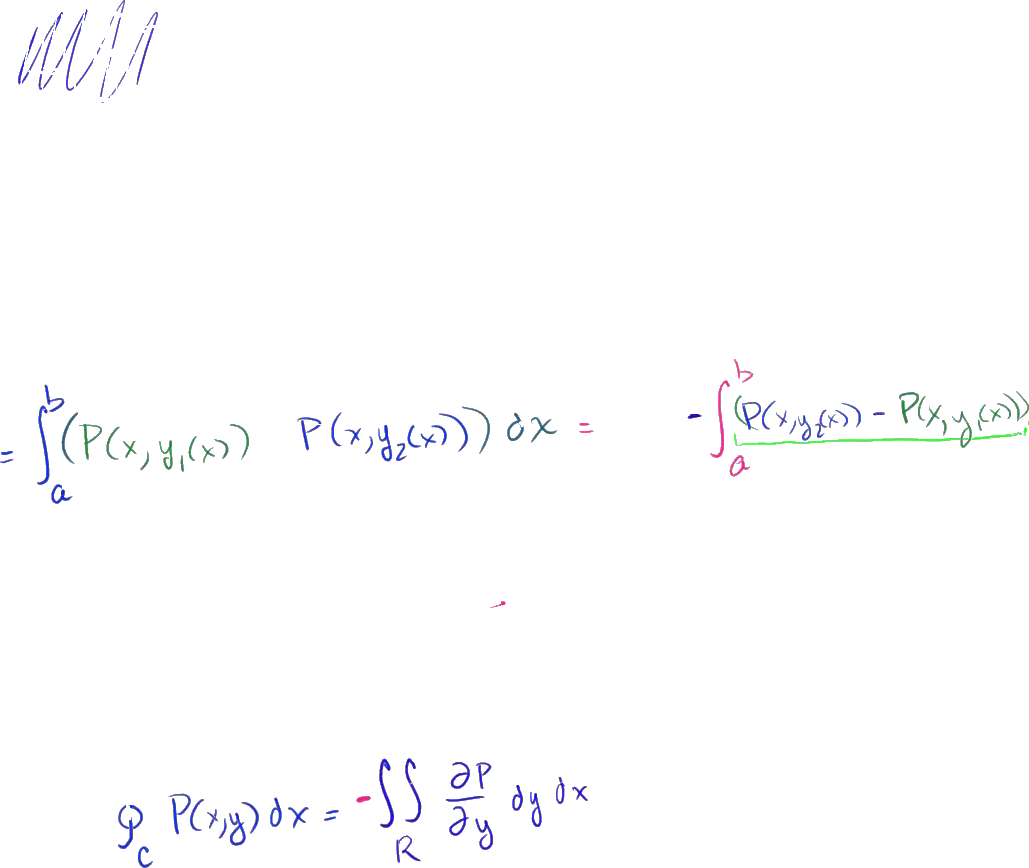 = ∫_a^b (P(x, y₁(x)) P(x, y₂(x))) dx = - ∫_a^b (P(x, y₂(x)) - P(x, y₁(x)))
∮_C P(x,y) dx = -∬_R ∂P/∂y dy dx